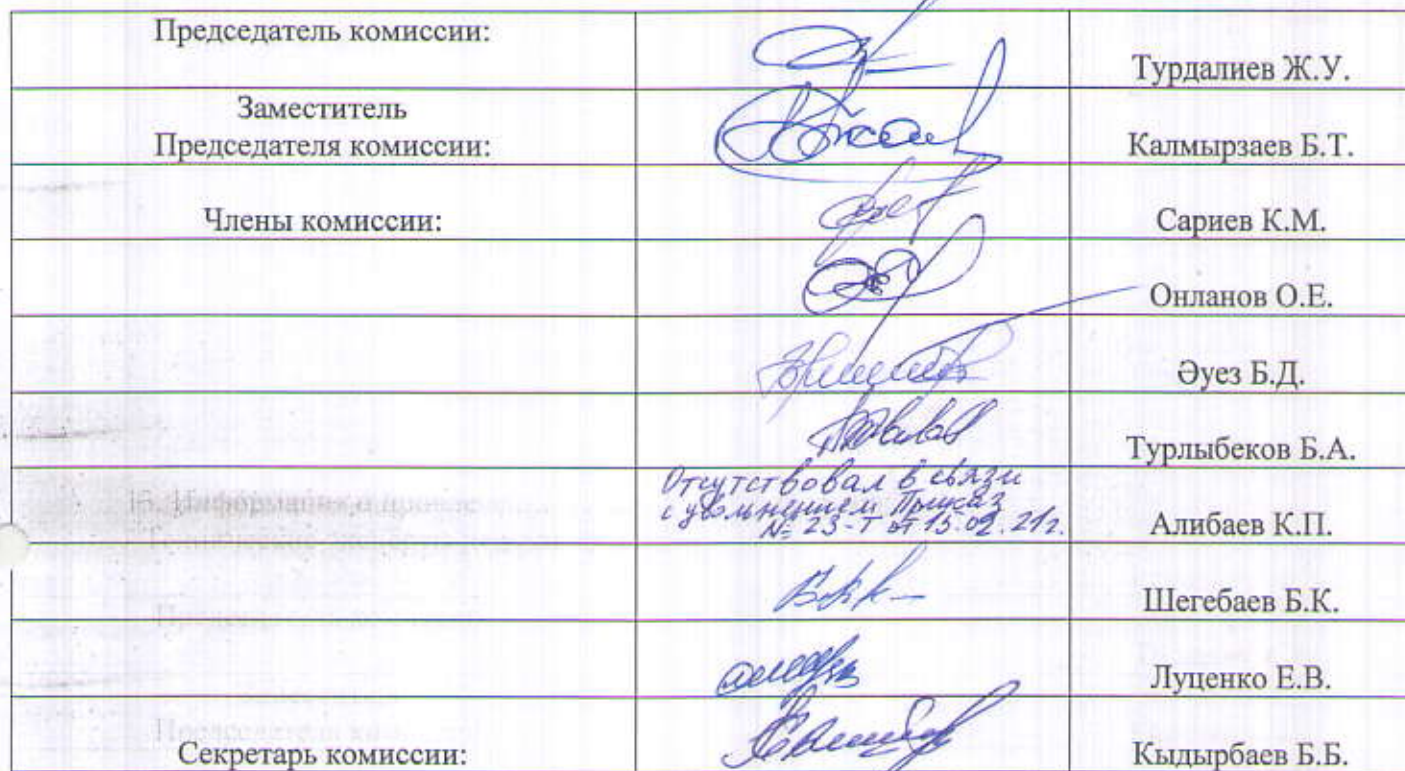 Председатель комиссии:
Турдалиев Ж.У.
Заместитель
Председателя комиссии:
Калмырзаев Б.Т.
Члены комиссии:
Сариев К.М.
Онланов О.Е.
Әуез Б.Д.
Турлыбеков Б.А.
Отсутствовал в связи
с увольнением Приказ
№ 23-Т от 15.02.21г.
Алибаев К.П.
Шегебаев Б.К.
Луценко Е.В.
Секретарь комиссии:
Кыдырбаев Б.Б.